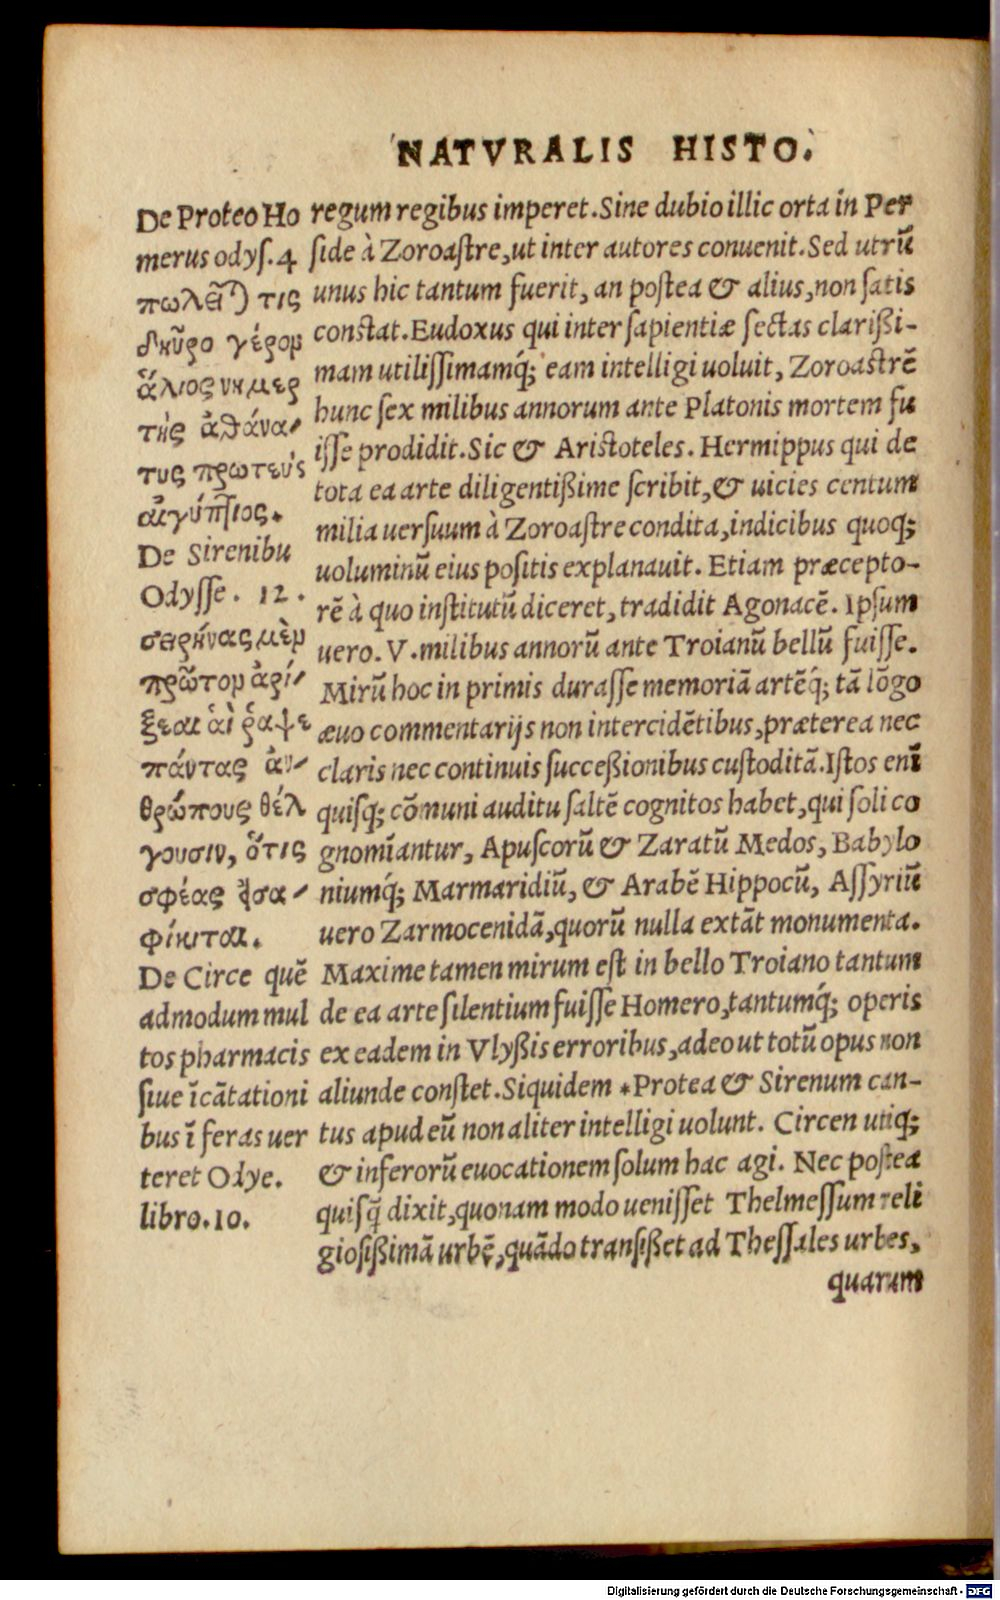 NATVRALIS HISTO.
De Proteo Ho
merus odys.4
πωλεῖ) τις
δεῦρο γέρομ
ἅλιος νημερ
τὴς ἀθάνα-
τυς πρωτεὺς
αἰγύπτιος.
De Sirenibu
Odysse. 12.
σειρήνας μὲμ
πρῶτομ ἀφί-
ξεαι αἱ ῥαψε
πάντας ἀν-
θρώπους θέλ
γουσιν, ὅτις
σφέας εἰσα-
φίκηται.
De Circe quē
admodum mul
tos pharmacis
siue īcātationi
bus ī feras uer
teret Odye.
libro.10.
regum regibus imperet. Sine dubio illic orta in Per
side à Zoroastre, ut inter autores conuenit. Sed utrū
unus hic tantum fuerit, an postea & alius, non satis
constat. Eudoxus qui inter sapientiæ sectas clarißi-
mam utilissimamq́; eam intelligi uoluit, Zoroastrē
hunc sex milibus annorum ante Platonis mortem fu
isse prodidit. Sic & Aristoteles. Hermippus qui de
tota ea arte diligentißime scribit, & uicies centum
milia uersuum à Zoroastre condita, indicibus quoq;
uoluminū eius positis explanauit. Etiam præcepto-
rē à quo institutū diceret, tradidit Agonacē. Ipsum
uero. V. milibus annorū ante Troianū bellū fuisse.
Mirū hoc in primis durasse memoriā artēq́; tā lōgo
æuo commentarijs non intercidētibus, præterea nec
claris nec continuis succeßionibus custoditā. Istos enī
quisq; cōmuni auditu saltē cognitos habet, qui soli co
gnomīantur, Apuscorū & Zaratū Medos, Babylo
niumq́; Marmaridiū, & Arabē Hippocū, Assyriū
uero Zarmocenidā, quorū nulla extāt monumenta.
Maxime tamen mirum est in bello Troiano tantum
de ea arte silentium fuisse Homero, tantumq́; operis
ex eadem in Vlyßis erroribus, adeo ut totū opus non
aliunde constet. Siquidem *Protea & Sirenum can-
tus apud eū non aliter intelligi uolunt. Circen utiq;
& inferorū euocationem solum hac agi. Nec postea
quisq̄ dixit, quonam modo uenisset Thelmessum reli
giosißimā urbē, quādo transißet ad Thessales urbes,
quarum
Digitalisierung gefördert durch die Deutsche Forschungsgemeinschaft - DFG